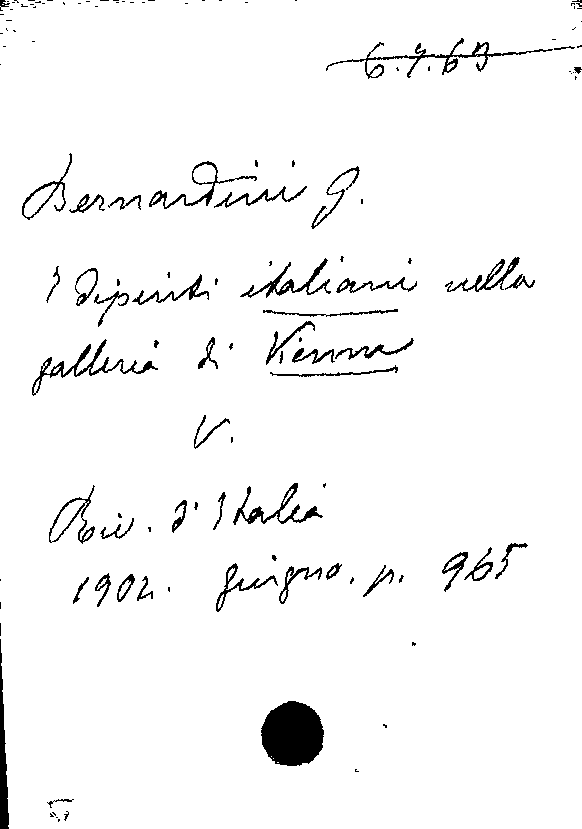 6.7.63
Bernardini G.
I dipinti italiani nella
galleria di Vienna
V.
Riv. d'Italia
1902. giugno. p. 965